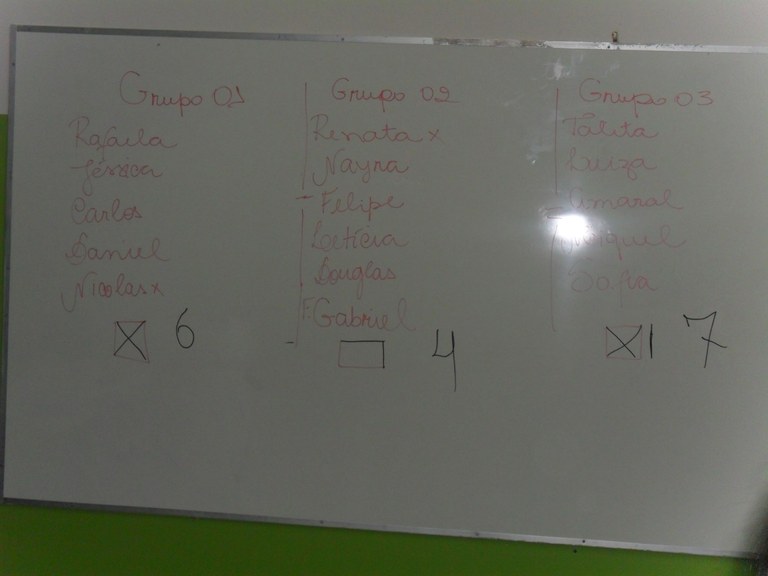 Grupo 01
Rafaela
Jéssica
Carlos
Daniel
Nicolas x
6
Grupo 02
Renata x
Nayna
Felipe
Letícia
Douglas
Gabriel
4
Grupo 03
Tálita
Luiza
Amaral
Sofia
7